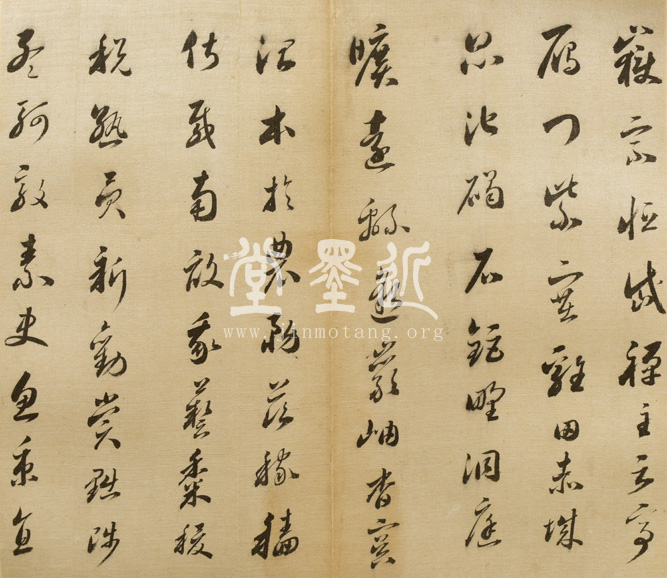 嶽宗恒岱禪主云亭
雁門紫塞雞田赤城
昆池碣石鉅野洞庭
曠遠緜邈巖岫杳冥
治本於農務茲稼穡
俶載南畝我藝黍稷
稅熟貢新勸賞黜陟
孟軻敦素史魚秉直
近墨堂
www.jinmotang.org